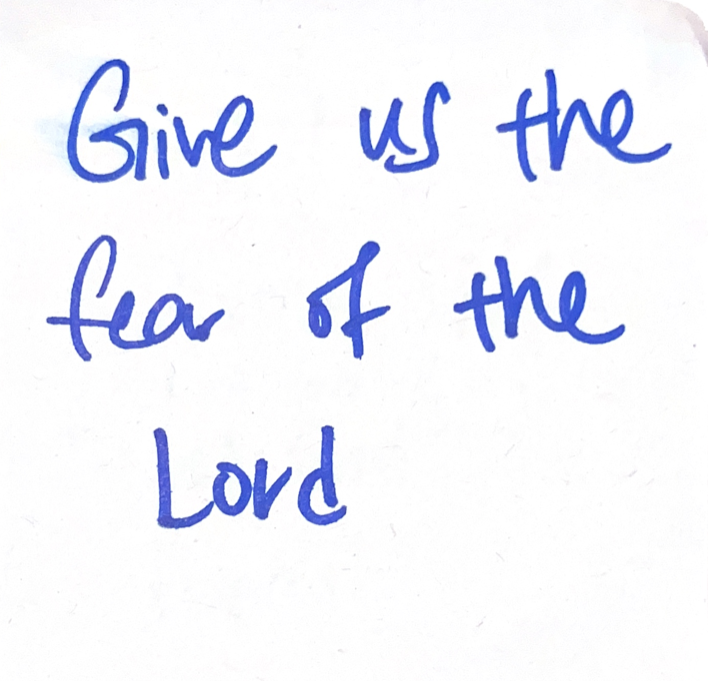 Give us the
fear of the
Lord